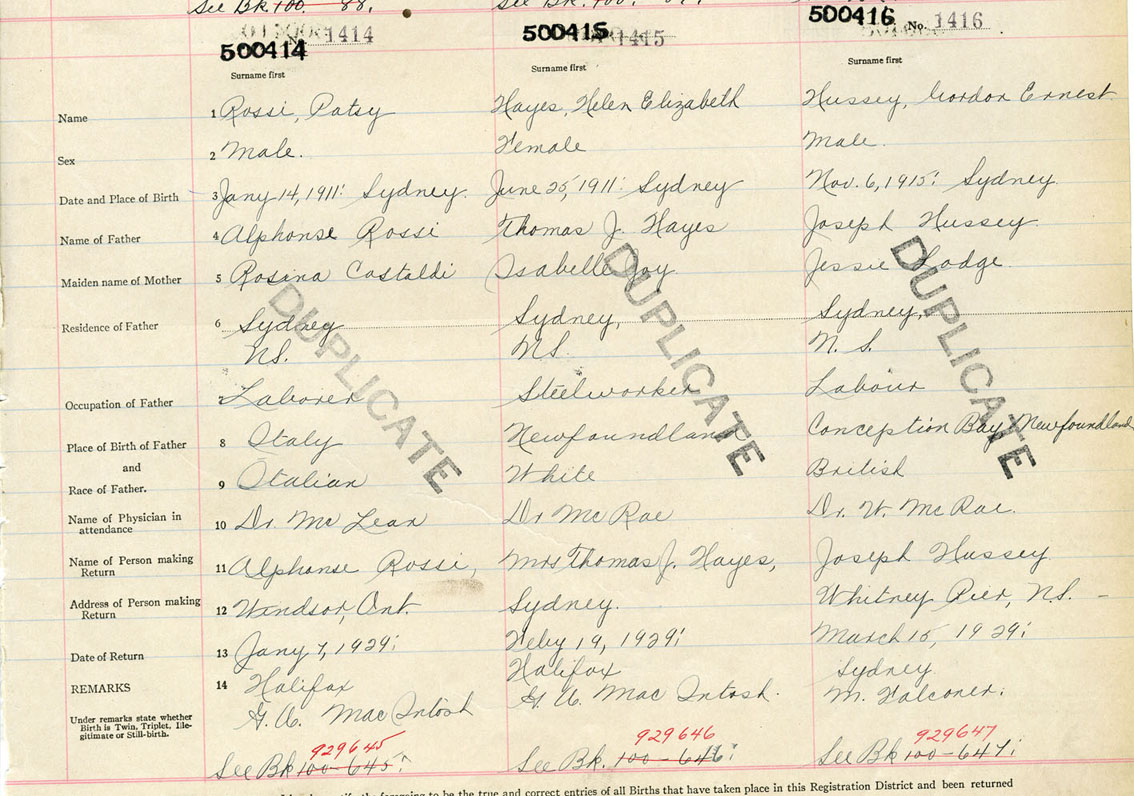 See Bk 100 88.
500414 No. 1414
500415 1415
500416 No. 1416
Surname first Surname first Surname first
Name 1 Rossi, Patsy Hayes, Helen Elizabeth Hussey, Gordon Ernest
Sex 2 Male. Female Male.
Date and Place of Birth 3 Jany 14, 1911: Sydney. June 25, 1911: Sydney Nov. 6, 1915: Sydney
Name of Father 4 Alphonse Rossi Thomas J. Hayes Joseph Hussey.
Maiden name of Mother 5 Rosina Costaldi Isabelle Jessie
Residence of Father 6 Sydney Sydney, Sydney,
N.S. N.S. N. S.
Occupation of Father 7 Laborer Steelworker Labour
Place of Birth of Father 8 Italy Newfoundland Conception Bay Newfoundland
and
Race of Father. 9 Italian White British
Name of Physician in attendance 10 Dr. McLean Dr McRae Dr. W. McRae.
Name of Person making Return 11 Alphonse Rossi, Mrs Thomas J. Hayes, Joseph Hussey
Address of Person making Return 12 Windsor, Ont. Sydney. Whitney Pier, N.S. -
Date of Return 13 Jany 7, 1929: Feby 19, 1929: March 15, 1929:
REMARKS 14 Halifax Halifax Sydney
G. A. MacIntosh G. A. MacIntosh. M. Falconer.
Under remarks state whether
Birth is Twin, Triplet, Ille-
gitimate or Still-birth.
929645 929646 929647
See Bk 100-645: See Bk. 100-646: See Bk 100-647:
DUPLICATE DUPLICATE DUPLICATE
the foregoing to be the true and correct entries of all Births that have taken place in this Registration District and been returned